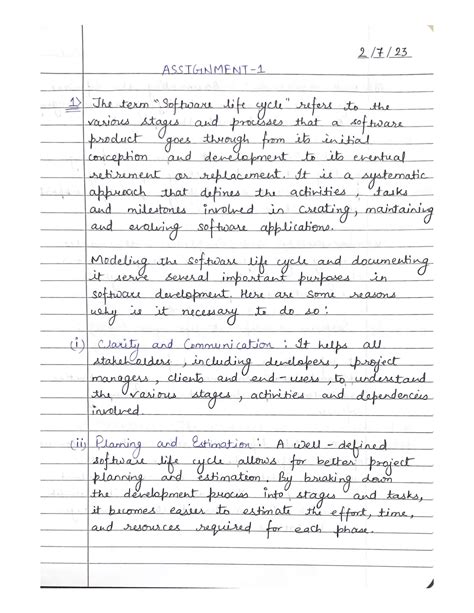 2/7/23
ASSIGNMENT-1
1) The term "Software life cycle" refers to the
various stages and processes that a software
product goes through from its initial
conception and development to its eventual
retirement or replacement. It is a systematic
approach that defines the activities, tasks
and milestones involved in creating, maintaining
and evolving software applications.
Modeling the software life cycle and documenting
it serve several important purposes in
software development. Here are some reasons
why is it necessary to do so:
(i) Clarity and Communication: It helps all
stakeholders, including developers, project
managers, clients and end-users, to understand
the various stages, activities and dependencies
involved.
(ii) Planning and Estimation: A well-defined
software life cycle allows for better project
planning and estimation. By breaking down
the development process into stages and tasks,
it becomes easier to estimate the effort, time,
and resources required for each phase.